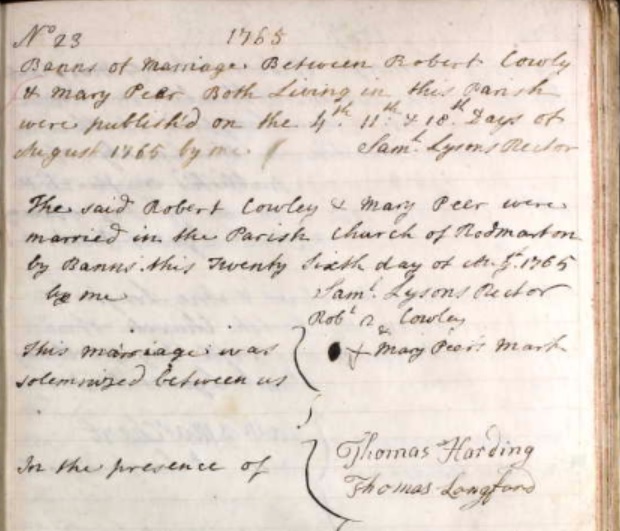 No 23 1765
Banns of Marriage Between Robert Cowly
& Mary Peer Both Living in this Parish
were publish'd on the 4th. 11th. & 18th. Days of
August 1765 by me. Saml. Lysons Rector
The said Robert Cowley & Mary Peer were
married in the Parish Church of Rodmarton
by Banns this Twenty Sixth day of Augst. 1765
by me Saml. Lysons Rector
Robt Cowley
This marriage was & Mary Peers Mark
solemnized between us
In the presence of Thomas Harding
Thomas Langford